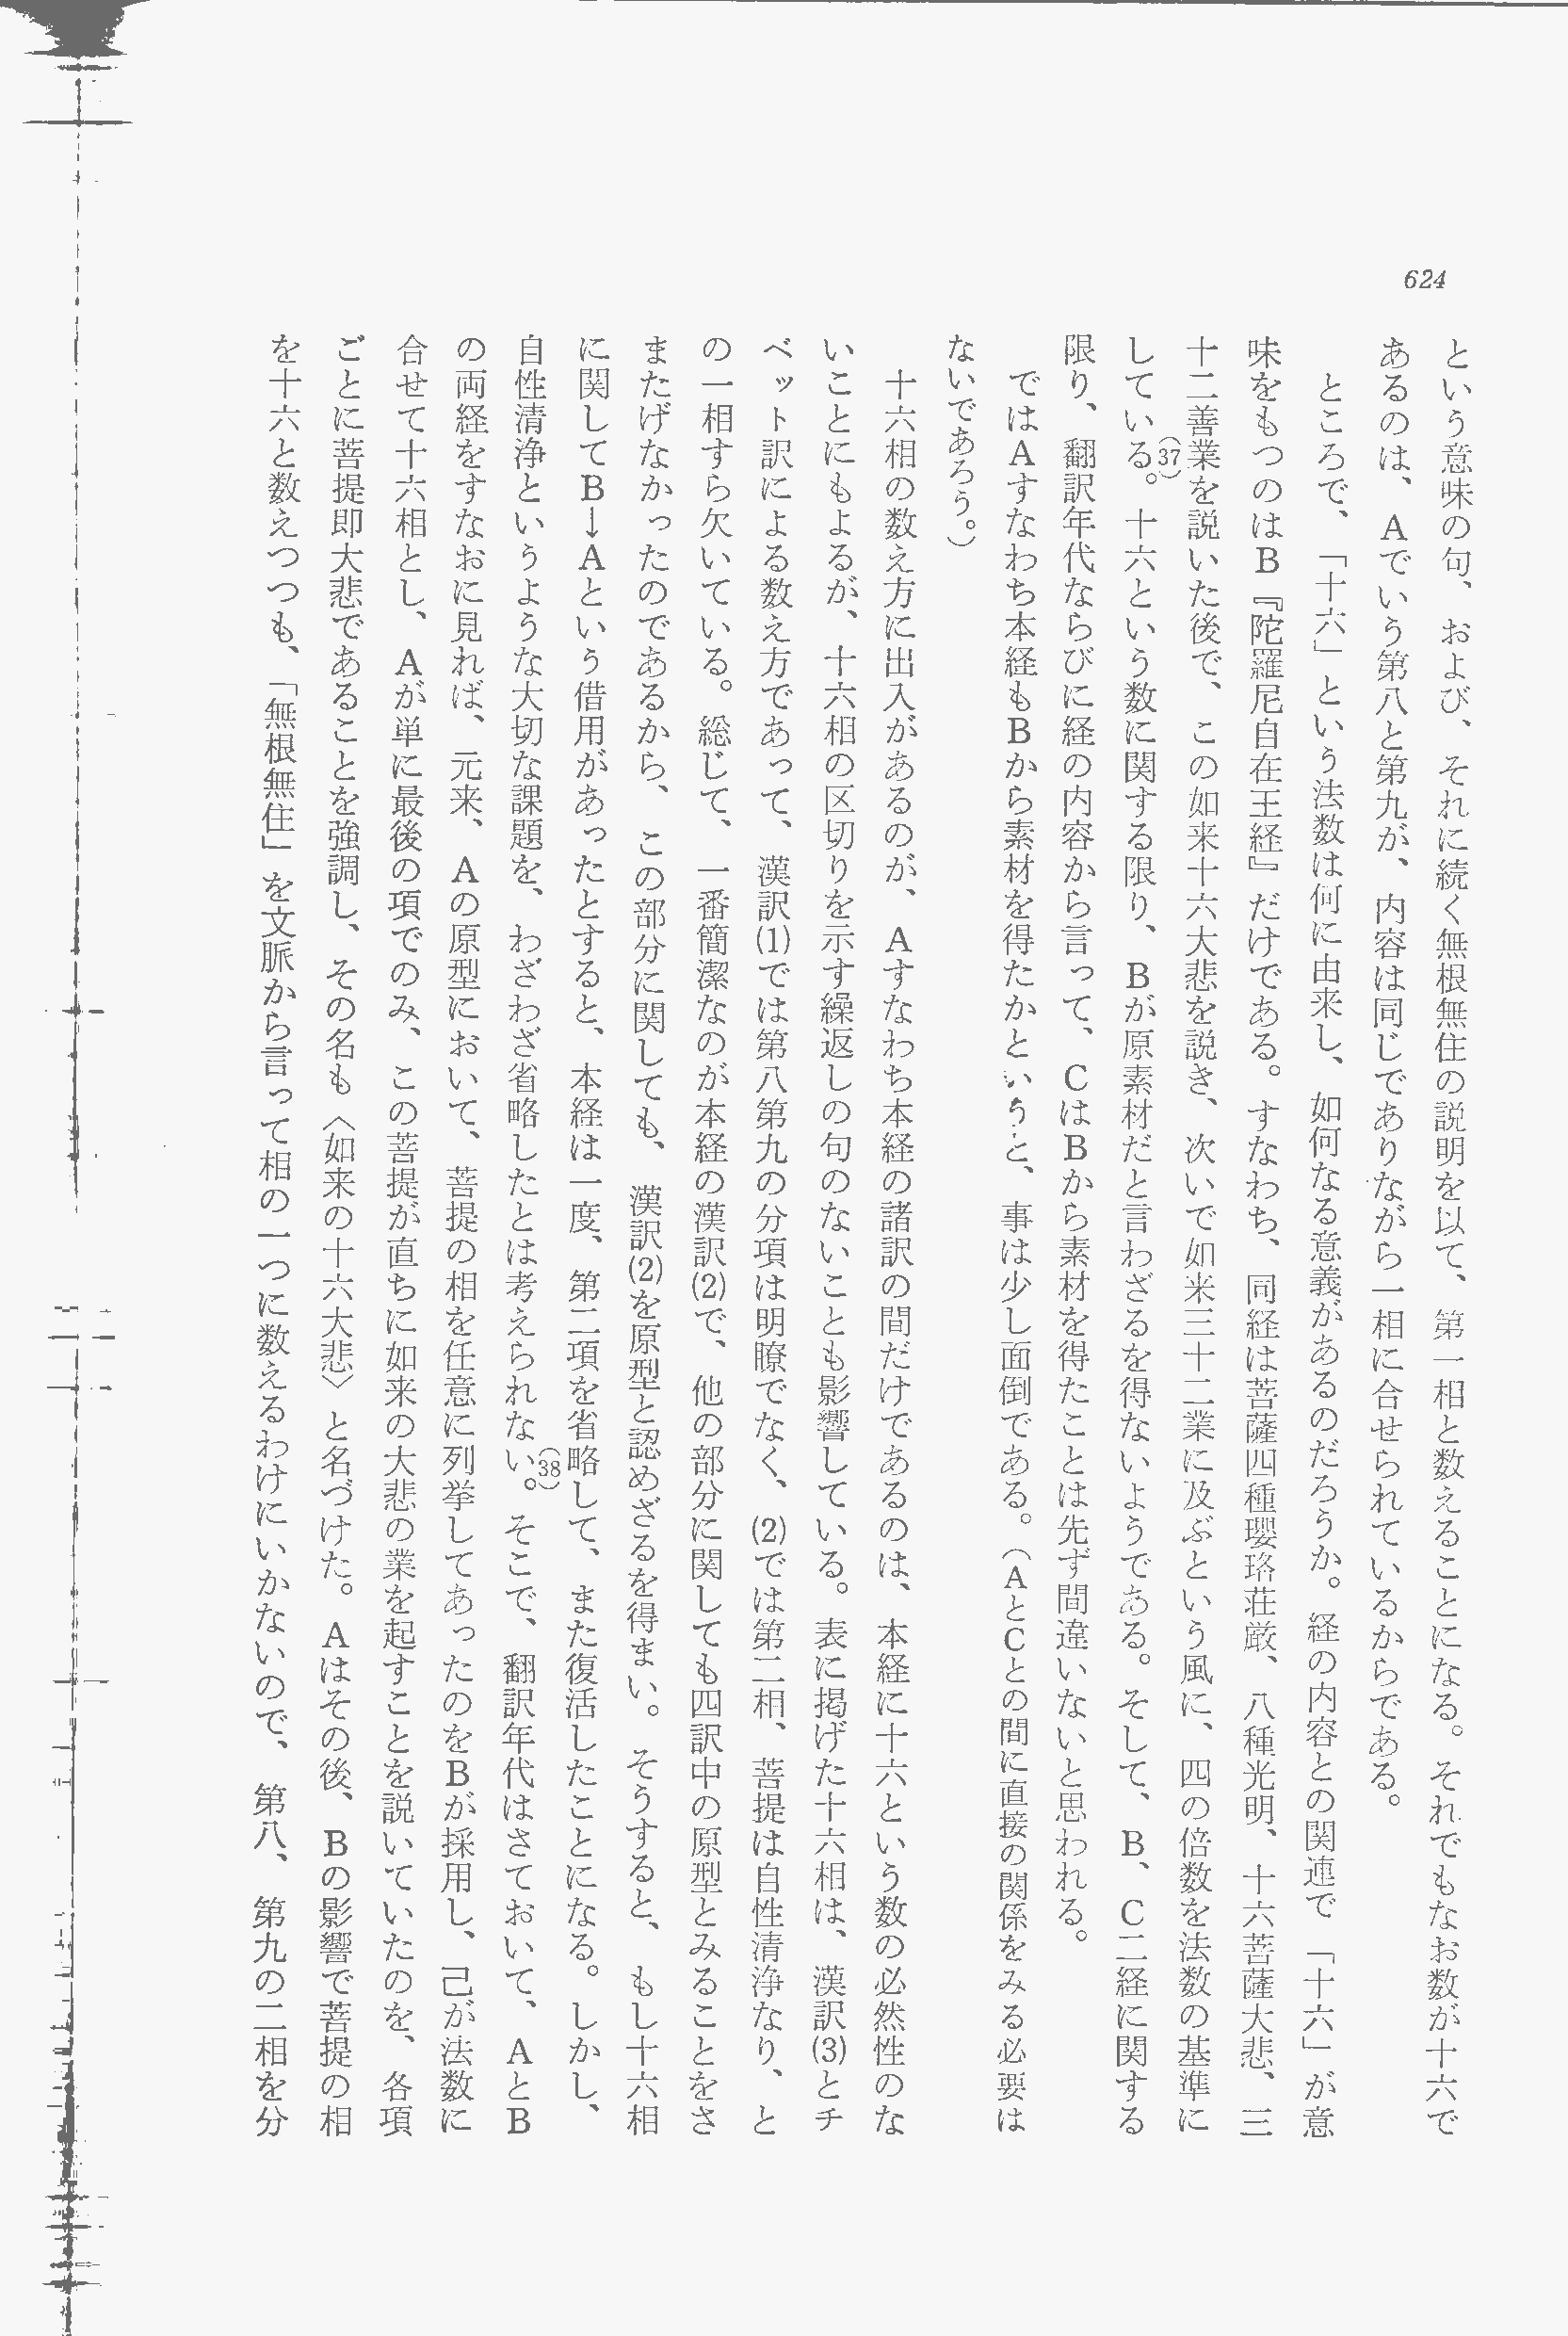 624
という意味の句、および、それに続く無根無住の説明を以て、第一相と数えることになる。それでもなお数が十六で
あるのは、Aでいう第八と第九が、内容は同じでありながら一相に合せられているからである。
ところで、「十六」という法数は何に由来し、如何なる意義があるのだろうか。経の内容との関連で「十六」が意
味をもつのはB『陀羅尼自在王経』だけである。すなわち、同経は菩薩四種瓔珞荘厳、八種光明、十六菩薩大悲、三
十二善業を説いた後で、この如来十六大悲を説き、次いで如来三十二業に及ぶという風に、四の倍数を法数の基準に
している(37)。十六という数に関する限り、Bが原素材だと言わざるを得ないようである。そして、B、C二経に関する
限り、翻訳年代ならびに経の内容から言って、CはBから素材を得たことは先ず間違いないと思われる。
ではAすなわち本経もBから素材を得たかというと、事は少し面倒である。(AとCとの間に直接の関係をみる必要は
ないであろう。)
十六相の数え方に出入があるのが、Aすなわち本経の諸訳の間だけであるのは、本経に十六という数の必然性のな
いことにもよるが、十六相の区切りを示す繰返しの句のないことも影響している。表に掲げた十六相は、漢訳(3)とチ
ベット訳による数え方であって、漢訳(1)では第八第九の分項は明瞭でなく、(2)では第二相、菩提は自性清浄なり、と
の一相すら欠いている。総じて、一番簡潔なのが本経の漢訳(2)で、他の部分に関しても四訳中の原型とみることをさ
またげなかったのであるから、この部分に関しても、漢訳(2)を原型と認めざるを得まい。そうすると、もし十六相
に関してB→Aという借用があったとすると、本経は一度、第二項を省略して、また復活したことになる。しかし、
自性清浄というような大切な課題を、わざわざ省略したとは考えられない(38)。そこで、翻訳年代はさておいて、AとB
の両経をすなおに見れば、元来、Aの原型において、菩提の相を任意に列挙してあったのをBが採用し、己が法数に
合せて十六相とし、Aが単に最後の項でのみ、この菩提が直ちに如来の大悲の業を起すことを説いていたのを、各項
ごとに菩提即大悲であることを強調し、その名も〈如来の十六大悲〉と名づけた。Aはその後、Bの影響で菩提の相
を十六と数えつつも、「無根無住」を文脈から言って相の一つに数えるわけにいかないので、第八、第九の二相を分